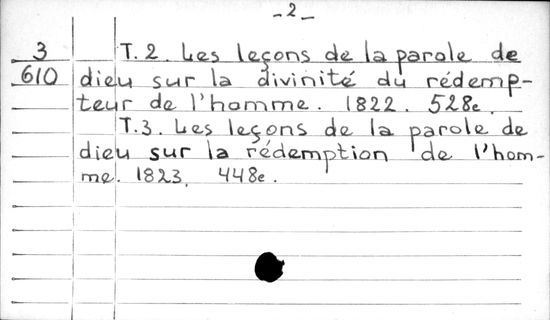 - 2 -
3 T. 2. Les leçons de la parole de
610 dieu sur la divinité du rédemp-
teur de l'homme. 1822. 528e.
T. 3. Les leçons de la parole de
dieu sur la rédemption de l'hom-
me. 1823. 448e.